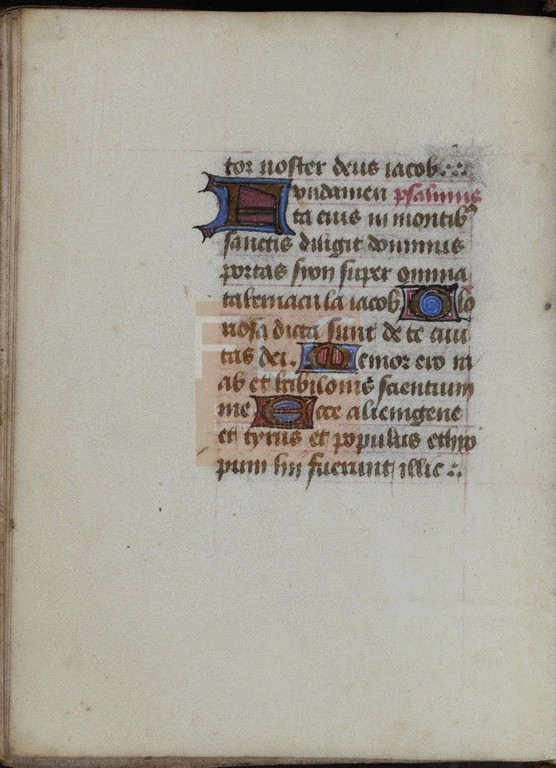 tor noster deus iacob.
Fundamen psalmus
ta eius in montib9
sanctis diligit dominus
portas syon super omnia
tabernacula iacob Glo
riosa dicta sunt de te ciui
tas dei. Memor ero ra
ab et babilonis scientium
me Ecce alienigene
et tyrus et populus ethyo
pum hii fuerunt illic